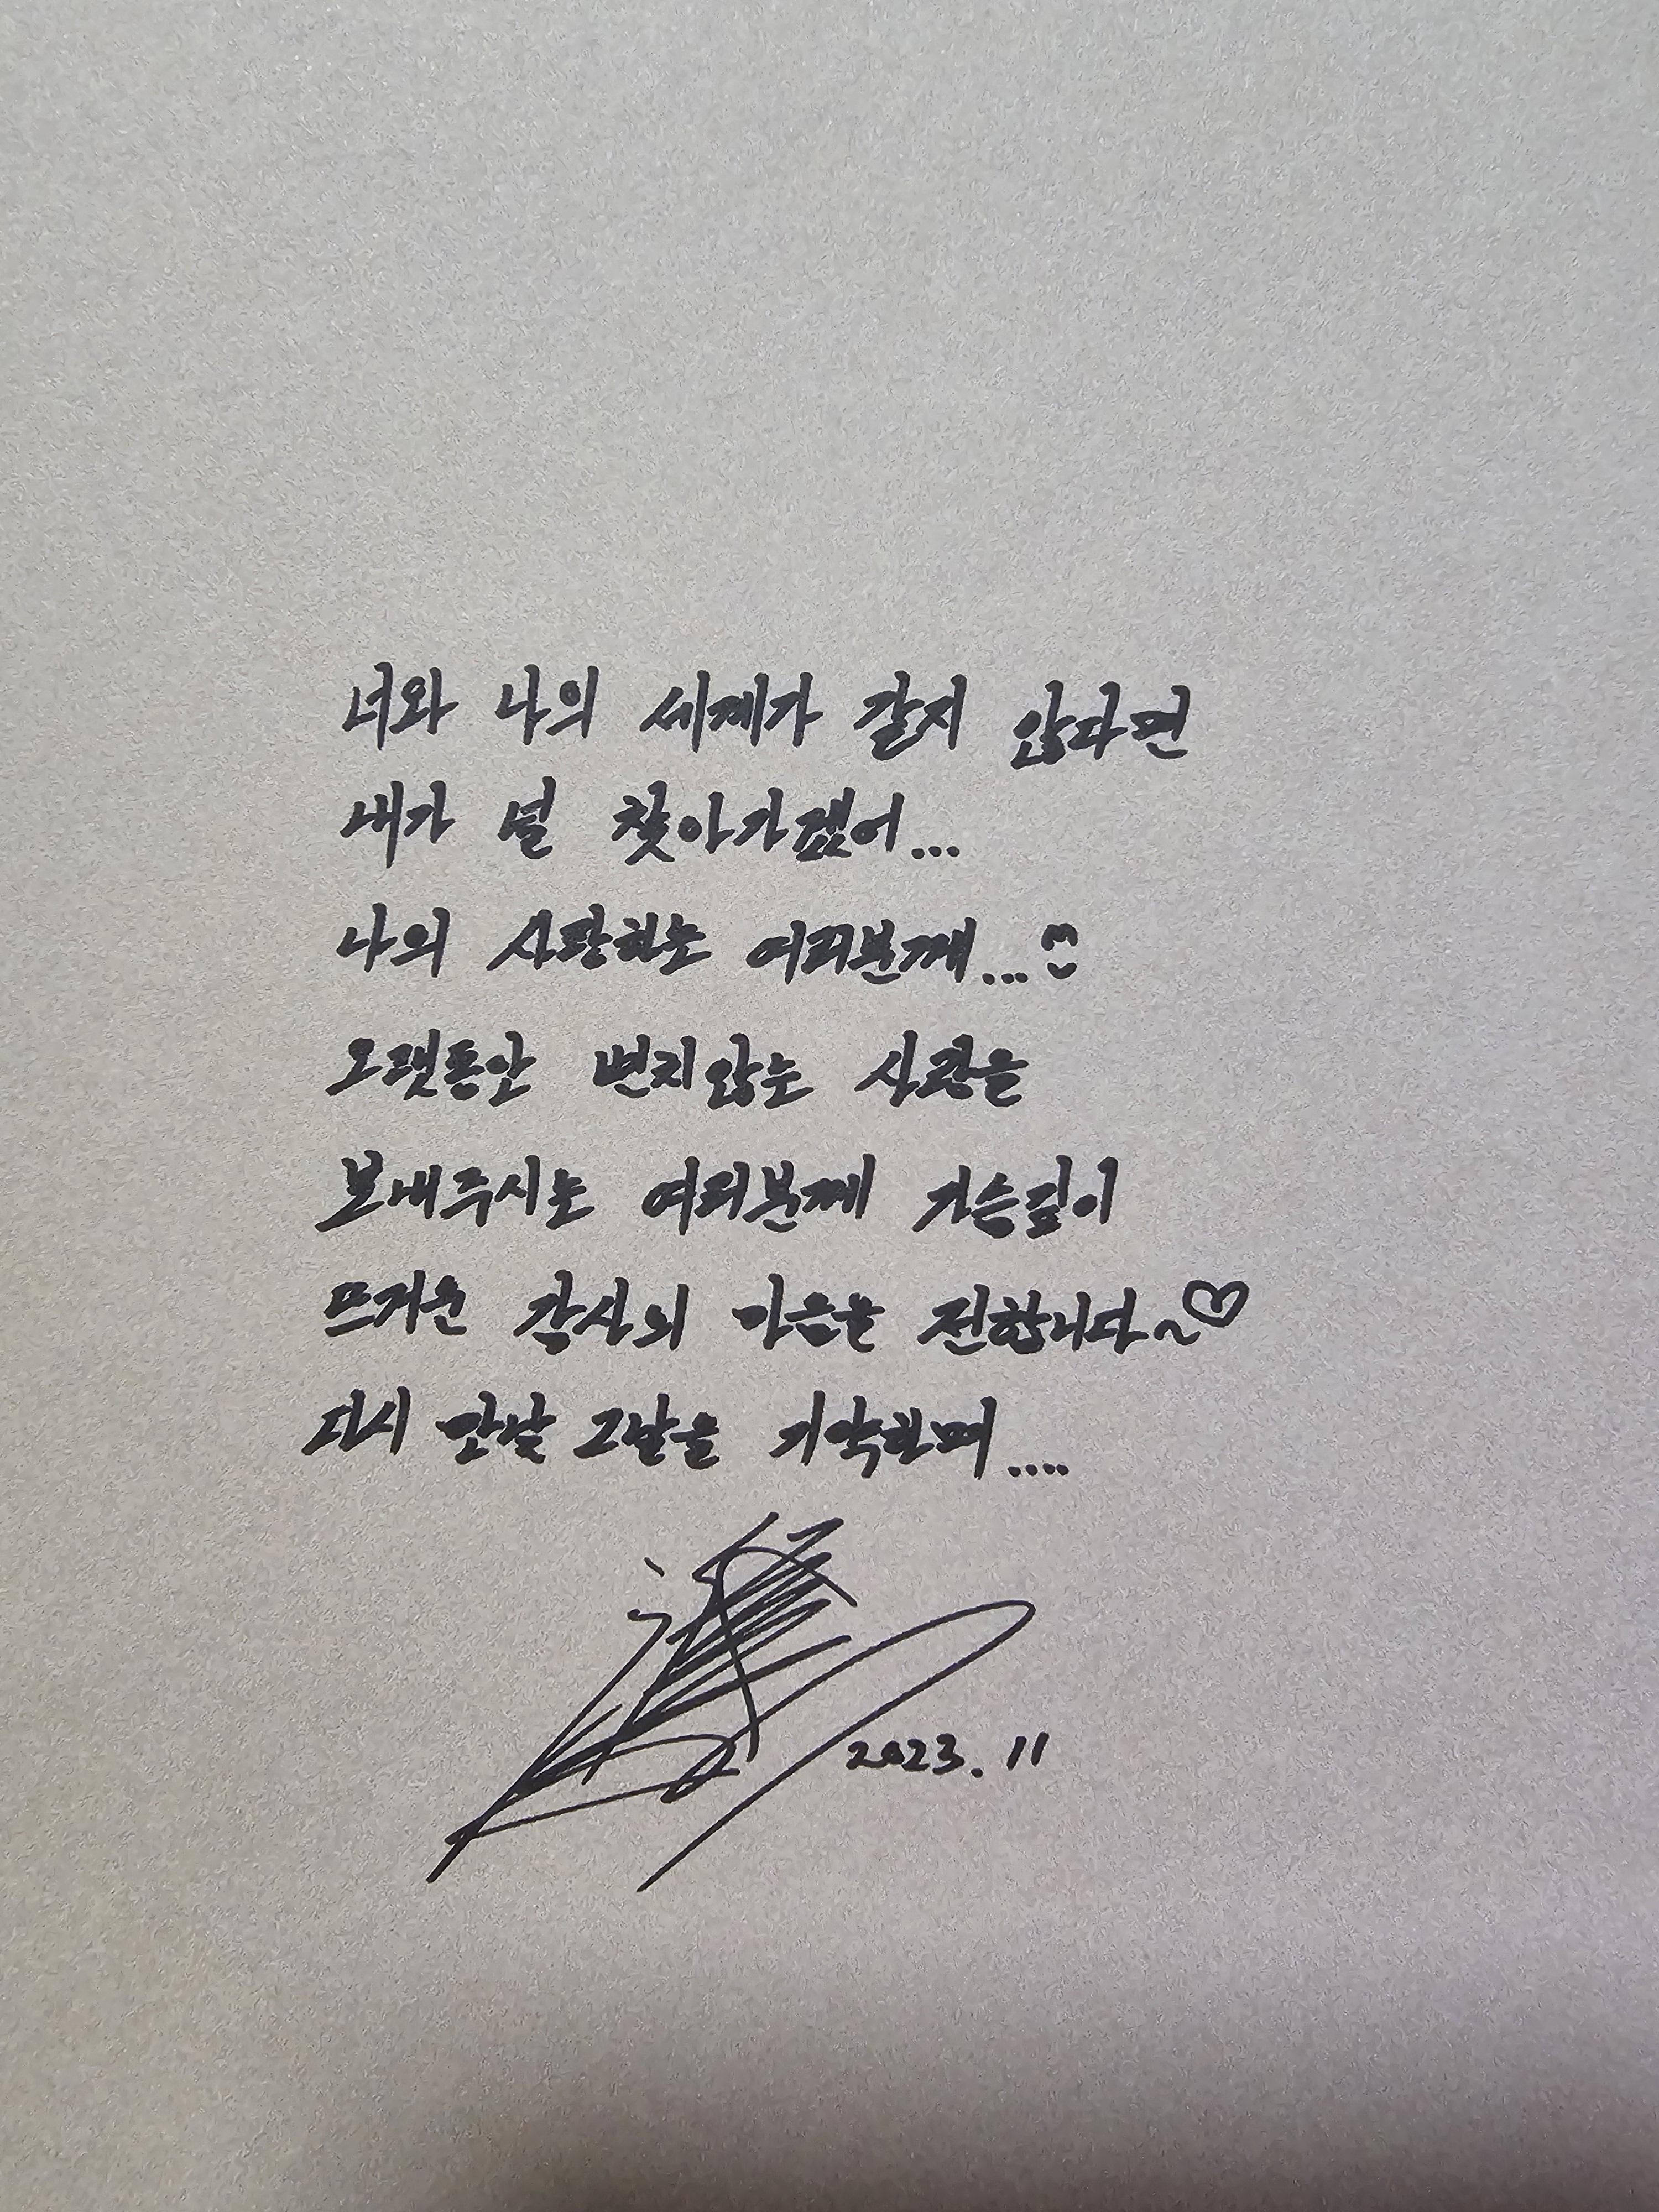 너와 나의 세계가 같지 않다면
내가 널 찾아가겠어...
나의 사랑하는 여러분께...
오랫동안 변치않는 사랑을
보내주시는 여러분께 가슴깊이
뜨거운 감사의 마음을 전합니다~♡
다시 만날 그날을 기약하며....
2023.11